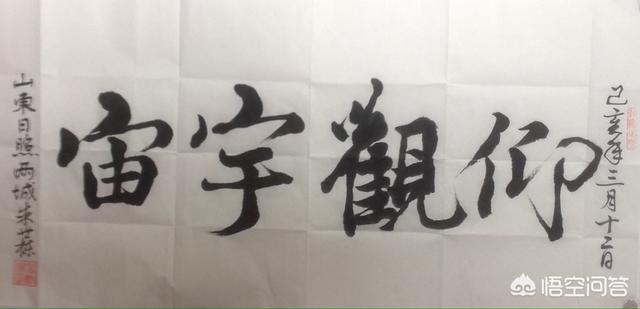 己亥年三月十二日
仰觀宇宙
山東日照兩城朱世樑
悟空问答